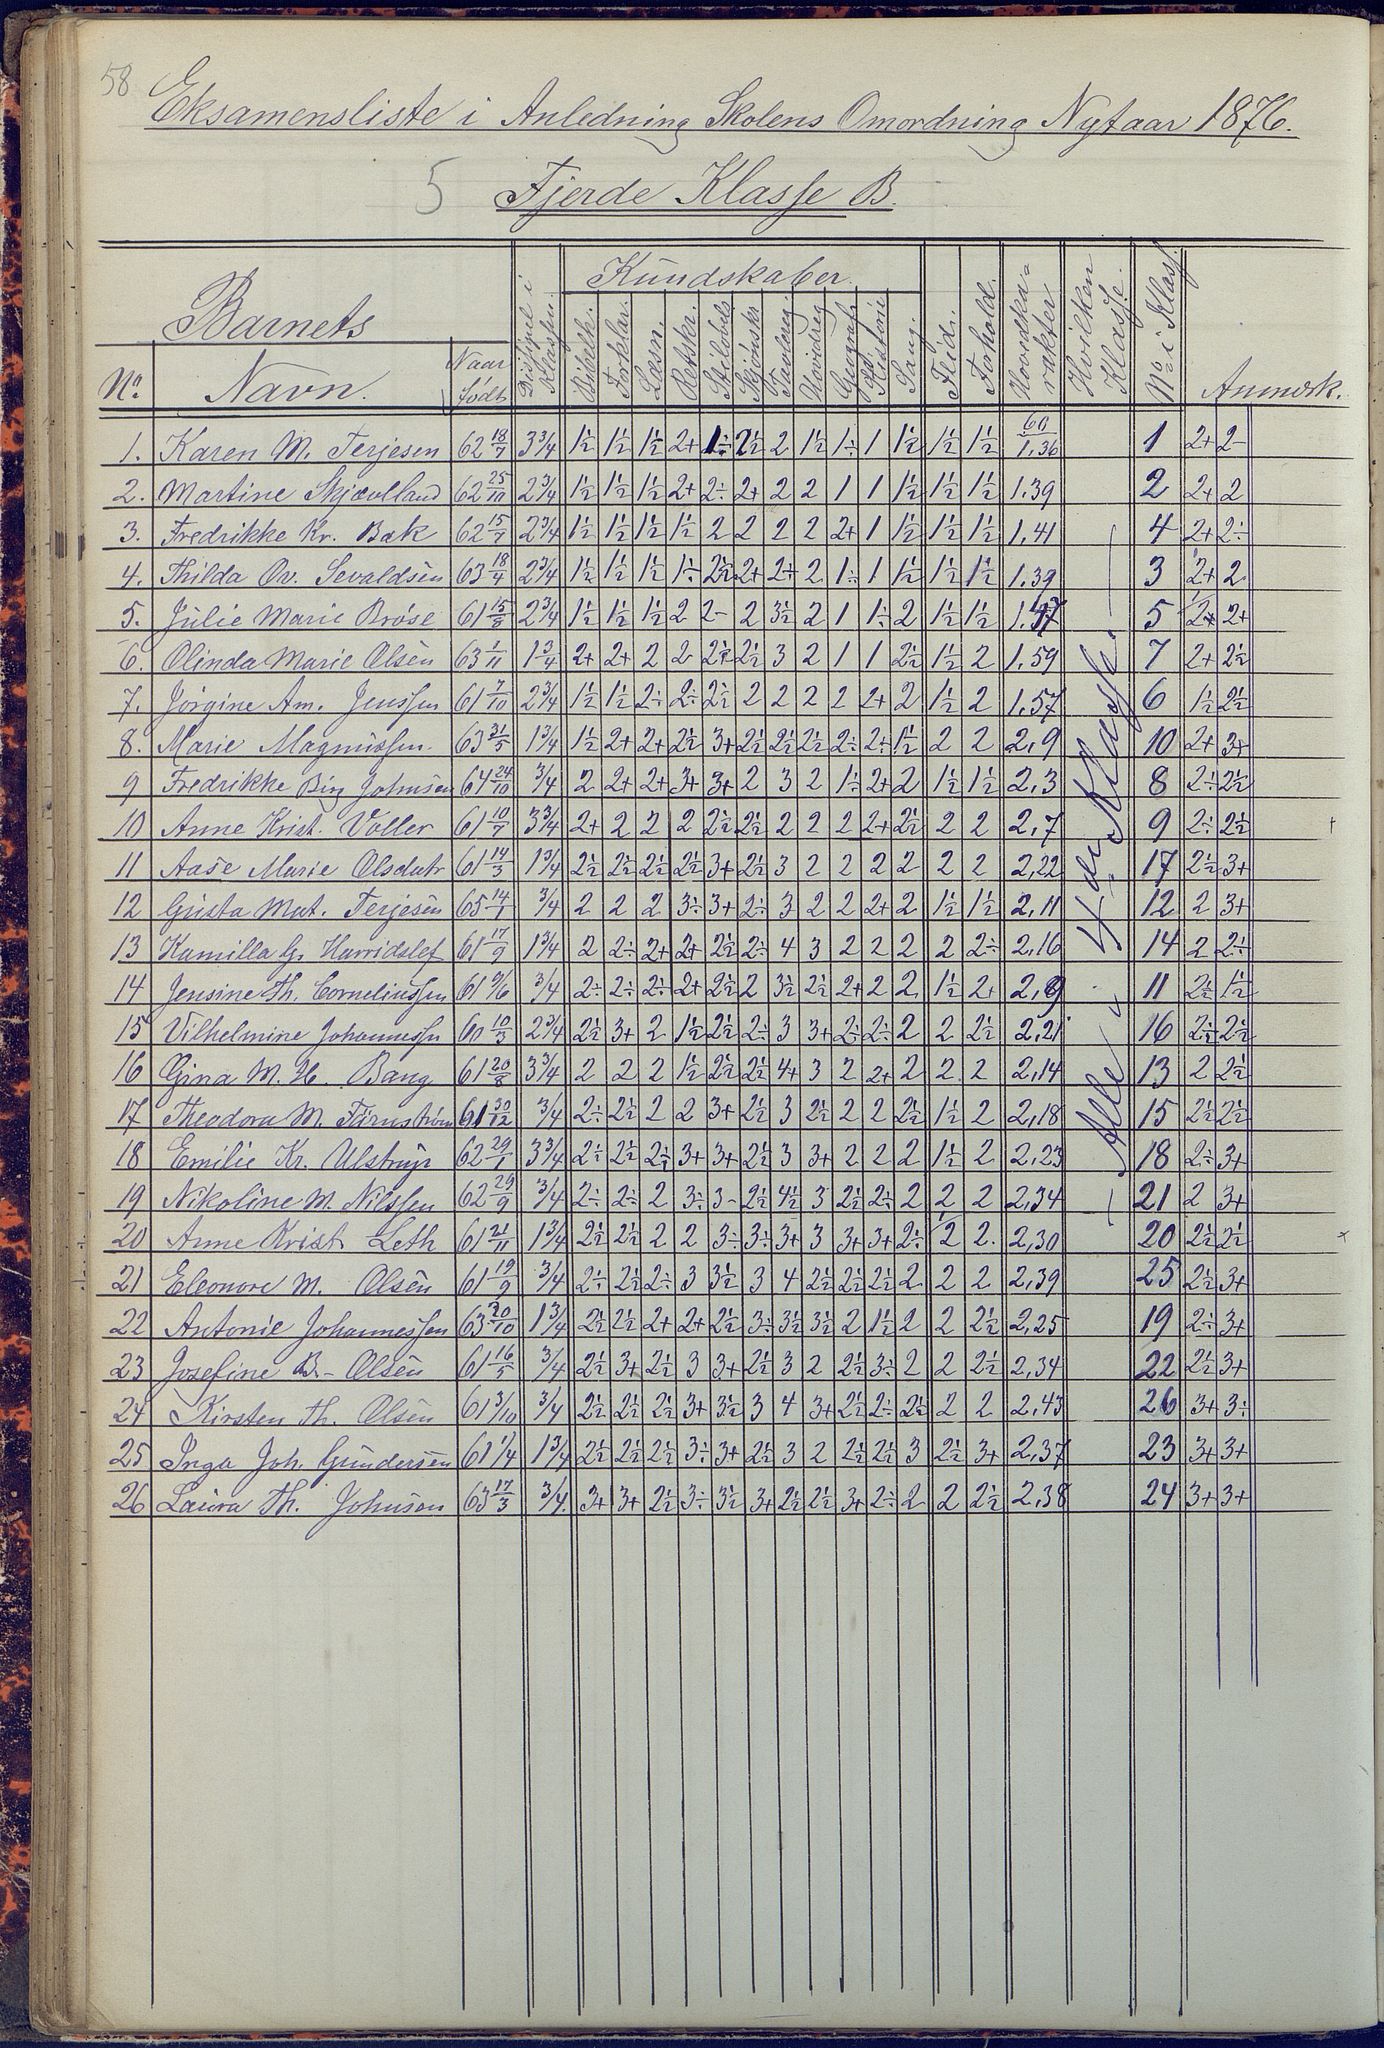 58
Eksamensliste i Anledning Skolens Omordning Nytaar 1876.
5 Fjerde Klasse B.
Barnets
No. Navn. Naar født
Discipel i Klassen.
Kundskaber.
Bibelh. Forklar. Læsn. Retskr. Skjønskr. Tavlereg. Hovedreg Geografi Historie Sang.
Flid. Forhold. Hovedkarakter Hvilken Klasse. No. i Klass. Anmærk.
1. Karen M. Terjesen 62 18/7 3 3/4 1½ 1½ 1½ 2+ 1÷ 2½ 2 1½ 1÷ 1 1½ 1½ 1½ 60/1,36 1 2+ 2-
2. Martine Skjævlland 62 25/10 2 3/4 1½ 1½ 1½ 2+ 2÷ 2+ 2 2 1 1 1½ 1½ 1½ 1,39 2 2+ 2
3. Fredrikke Kr. Bak 62 15/7 2 3/4 1½ 1½ 1½ 1½ 2 2 2 2 2+ 1 1½ 1½ 1½ 1,41 4 2+ 2÷
4. Thilda Ov. Sevaldsen 63 18/4 2 3/4 1½ 1½ 1½ 1÷ 2½ 2+ 2+ 2 1÷ 1 1½ 1½ 1½ 1,39 3 2+ 2
5. Julie Marie Brøse 61 15/8 2 3/4 1½ 1½ 1½ 2 2- 2 3½ 2 1 1÷ 2 1½ 1½ 1,47 5 2+ 2+
6. Olinda Marie Olsen 63 1/11 1 3/4 2+ 2+ 2 2 2½ 2½ 3 2 1 1 2½ 1½ 2 1,59 7 2+ 2½
7. Jørgine Am. Jenssen 61 7/10 2 3/4 1½ 1½ 2÷ 2÷ 2½ 2 2 2 2 2+ 2 1½ 2 1,57 6 1½ 2½
8. Marie Magnussen 63 31/5 1 3/4 1½ 2+ 2+ 2½ 3+ 2½ 2½ 2½ 2÷ 2÷ 1½ 2 2 2,9 10 2+ 3+
9 Fredrikke Birg Johnsen 64 24/10 3/4 2 2+ 2+ 3+ 3+ 2 3 2 1÷ 2+ 2 1½ 1½ 2,3 8 2÷ 2½
10 Anne Krist. Voller 61 10/7 3 3/4 2+ 2 2 2 2½ 2½ 2 2 2 2+ 2½ 2 2 2,7 9 2÷ 2½
11 Aase Marie Olsdatr 61 14/3 1 3/4 2½ 2½ 2½ 2½ 3+ 2½ 3 2 2 2 2 2 2 2,22 17 2½ 3+
12 Gusta Mat. Terjesen 65 14/1 3/4 2 2 2 3÷ 3+ 2÷ 3 2 2 2+ 2 1½ 1½ 2,11 12 2 3+
13 Kamilla G. Harridslef 61 17/9 1 3/4 2 2÷ 2+ 2+ 2½ 2÷ 4 3 2 2 2 2 2÷ 2,16 14 2 2÷
14 Jensine Th. Corneliussen 61 9/6 3/4 2÷ 2÷ 2÷ 2+ 2½ 2 3½ 2½ 2+ 2 2 1½ 2+ 2,9 11 2½ 1½
15 Vilhelmine Johannessen 60 10/3 2 3/4 2½ 3+ 2 1½ 2½ 2÷ 3 3+ 2÷ 2÷ 2 2 2½ 2,21 16 2½ 2½
16 Gina M. H. Bang 61 20/8 3 3/4 2 2 2 1½ 2½ 2½ 4+ 3 2 2+ 2 2 2 2,14 13 2 2½
17 Theodora M. Törnström 61 30/12 3/4 2÷ 2½ 2 2 3+ 2½ 3 2½ 2 2 2½ 1½ 2 2,18 15 2½ 2½
18 Emilie Kr. Ulstrup 62 29/1 3 3/4 2½ 2½ 2½ 3+ 3+ 2½ 3 3+ 2 2 2 1½ 2 2,23 18 2÷ 3+
19 Nikoline M. Nilssen 62 29/9 3/4 2÷ 2÷ 2 3÷ 3- 2½ 4½ 3 2½ 2÷ 2 2 2 2,34 21 2 3+
20 Anne Krist. Leth 61 21/11 1 3/4 2½ 2½ 2 2 3÷ 3÷ 3+ 3 3+ 3+ 2÷ 2 2 2,30 20 2½ 2½
21 Eleonore M. Olsen 61 19/9 3/4 2÷ 2½ 2÷ 3 3½ 3 4 2½ 2½ 2½ 2 2 2 2,39 25 2½ 3+
22 Antonie Johannessen 63 20/10 1 3/4 2½ 2½ 2+ 2+ 2½ 3÷ 3½ 3½ 2 1½ 2 2 2½ 2,25 19 2÷ 3+
23 Josefine B. Olsen 61 16/5 3/4 2½ 3+ 2½ 3 3+ 2½ 3 2 2½ 3÷ 2 2 2½ 2,34 22 2½ 3+
24 Kirsten Th. Olsen 61 3/10 3/4 2½ 2½ 2½ 3+ 3½ 3 4 3+ 2½ 2÷ 2½ 2 2 2,43 26 3+ 3÷
25 Inga Joh. Gundersen 61 1/4 1 3/4 2½ 2½ 2½ 3÷ 3+ 2½ 3 2 2½ 2½ 3 2½ 3+ 2,37 23 3+ 3+
26 Laura Th. Johnson 63 17/3 3/4 3+ 3+ 2½ 3÷ 3½ 3+ 2½ 2½ 3+ 2÷ 2 2 2½ 2,38 24 3+ 3+
Alle i 4de Klasse.